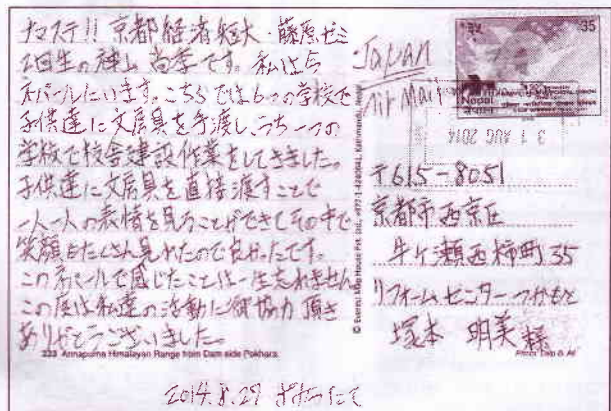 ナマステ!! 京都経済短大・藤原ゼミ
2回生の神山 尚学です。私は今
ネパールにいます。こちらでは6つの学校で
子供達に文房具を手渡し、うち一つの
学校で校舎建設作業をしてきました。
子供達に文房具を直接渡すことで
一人一人の表情を見ることができてその中で
笑顔もたくさん見れたので良かったです。
このネパールで感じたことは一生忘れません。
この度は私達の活動に御協力頂き
ありがとうございました。
233 Annapurna Himalayan Range from Dam side Pokhara.
2014.8.29
© Everest Map House Pvt. Ltd.
Japan
Air Mail
35
Nepal
31 AUG 2014
〒615-8051
京都市西京区
牛ケ瀬西柿町35
リフォームセンターつかもと
塚本 明美 様